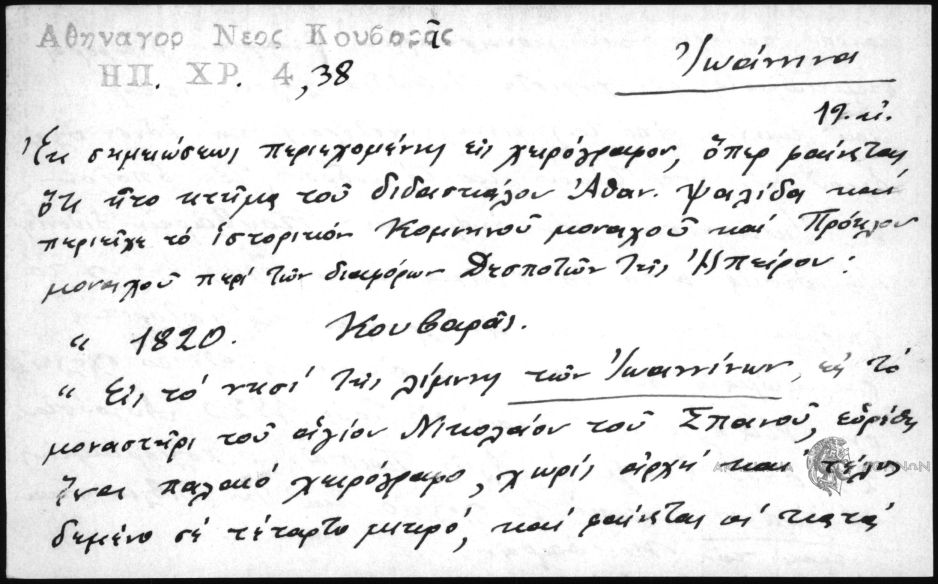 Αθηναγορ Νεος Κουβαρᾶς
ΗΠ. ΧΡ. 4, 38
Ἰωάννινα
19. αἰ.
Ἐκ σημειώσεως περιεχομένης εἰς χειρόγραφον, ὅπερ φαίνεται
ὅτι ἦτο κτῆμα τοῦ διδασκάλου Ἀθαν. Ψαλίδα καὶ
περιεῖχε τό ἱστορικόν Κομνηνοῦ μοναχοῦ καί Πρόκλου
μοναχοῦ περί τῶν διαφόρων Δεσποτῶν τῆς Ἠπείρου:
" 1820. Κουβαρᾶς.
" Εἰς τό νησί τῆς λίμνης τῶν Ἰωαννίνων, εἰς τό
μοναστήρι τοῦ ἁγίου Νικολάου τοῦ Σπανοῦ, εὑρέθη
ἕνας παλαιό χειρόγραφο, χωρίς ἀρχή καί τέλος
δεμένο σέ τέταρτο μικρό, καί φαίνεται κατά